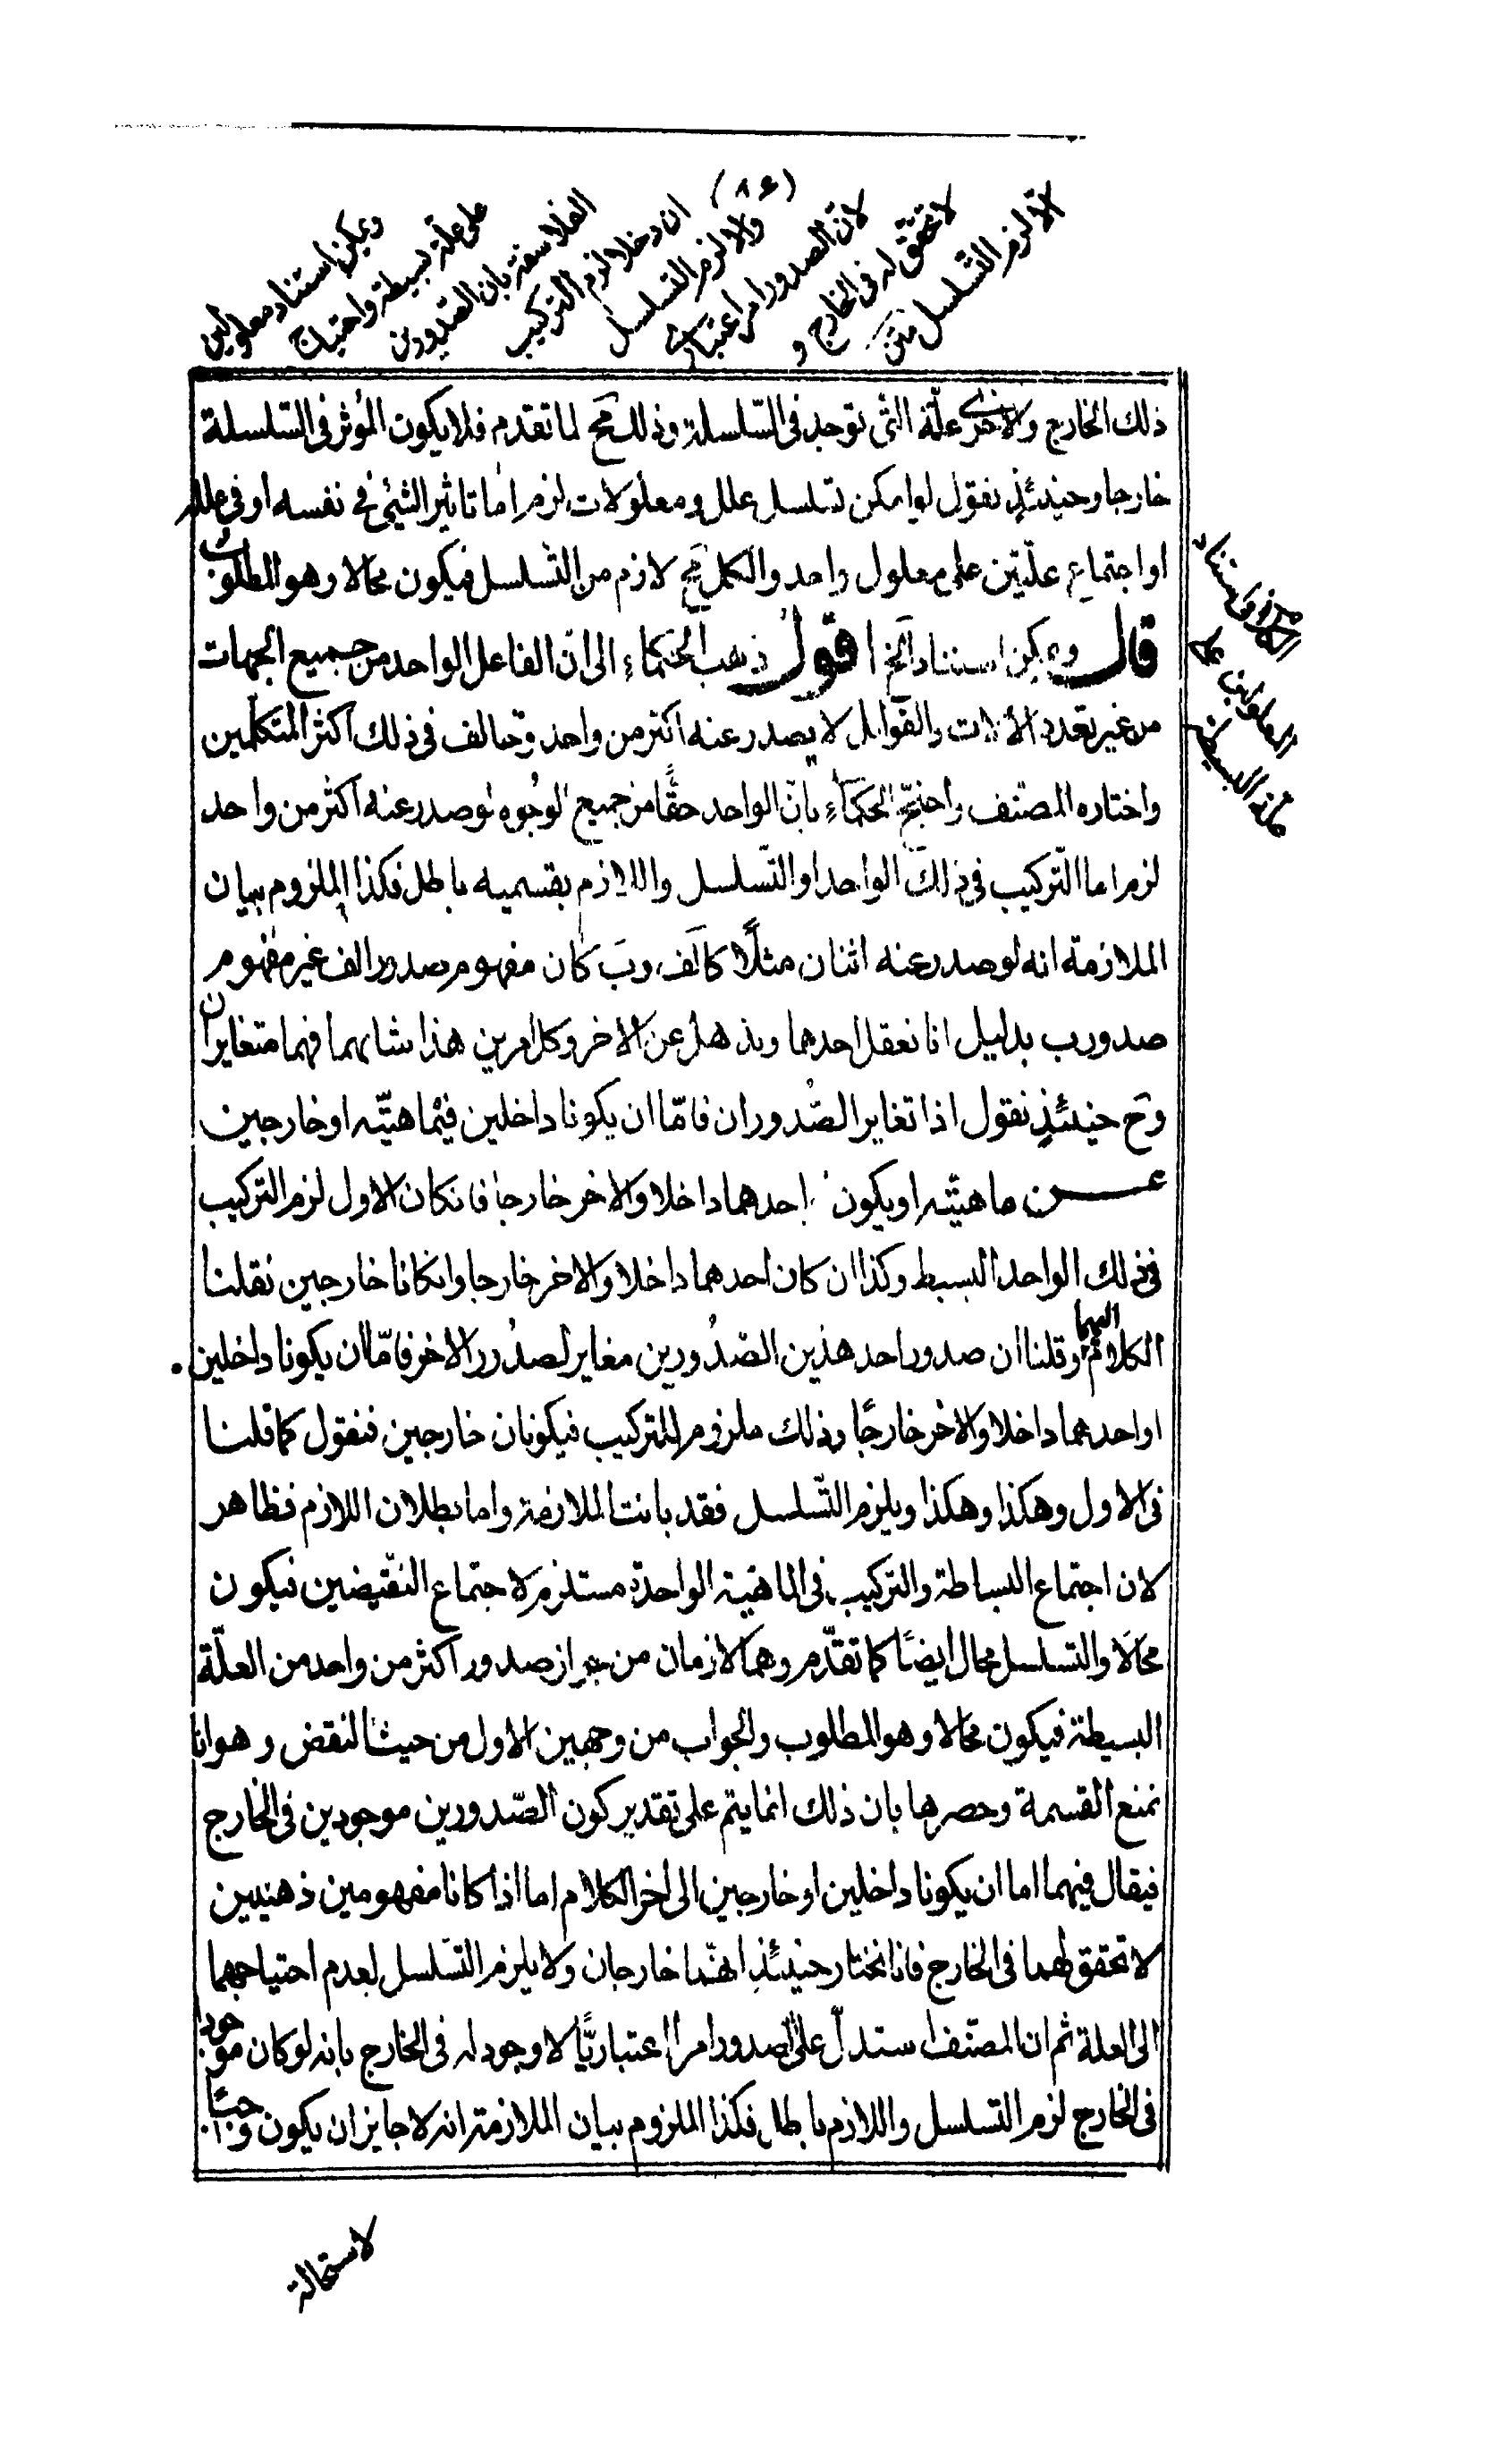 (٨٤)
ويمكن استناد معلولين
على علة بسيطة واحتجاج
الفلاسفة بان الصدورين
ان دخلا لزم التركيب
والا لزم التسلسل
لان الصدور امر اعتبارى
لا تحقق له فى الخارج و
الا لزم التسلسل
ذلك الخارج والاخرى علّة التى توجد فى السّلسلة وذلك مح لما تقدم فلا يكون المؤثر فى السّلسلة
خارجا وحينئذٍ نقول لو امكن تسلسل علل ومعلولات لزم اما تاثير الشيئ فى نفسه او فى علله
او اجتماع علّتين على معلول واحد والكل مح لازم من التّسلسل فيكون محالا وهو المطلوب
قال ويمكن استناد الخ اقول ذهب الحكماء الى ان الفاعل الواحد من جميع الجهات
من غير تعدد الآلات والقوابل لا يصدر عنه اكثر من واحد وخالف فى ذلك اكثر المتكلّمين
واختاره المصنف واحتجّ الحكماء بانّ الواحد حقًّا من جميع الوجوه لو صدر عنه اكثر من واحد
لزم اما التّركيب فى ذلك الواحد او التّسلسل واللازم بقسميه باطل فكذا الملزوم بيان
الملازمة انه لو صدر عنه اثنان مثلًا كالف وب كان مفهوم صدور الف غير مفهوم
صدور ب بدليل انا نعقل احدهما ونذهل عن الاخر وكل امرين هذا شانهما فهما متغايران
وح حينئذٍ نقول اذا تغاير الصّدوران فامّا ان يكونا داخلين فى ماهيّته او خارجين
عن ماهيّته او يكون احدهما داخلا والاخر خارجا فان كان الاول لزم التركيب
فى ذلك الواحد البسيط وكذا ان كان احدهما داخلا والاخر خارجا وان كانا خارجين نقلنا
الكلام اليهما وقلنا ان صدور احد هذين الصّدورين مغاير لصدور الاخر فامّا ان يكونا داخلين
او احدهما داخلا والاخر خارجًا وذلك ملزوم للتركيب فيكونان خارجين فنقول كما قلنا
فى الاول وهكذا وهكذا ويلزم التّسلسل فقد بانت الملازمة واما بطلان اللازم فظاهر
لان اجتماع البساطة والتركيب فى الماهيّة الواحدة مستلزم لاجتماع النّقيضين فيكون
محالًا والتسلسل محال ايضًا كما تقدّم وهما لازمان من جواز صدور اكثر من واحد من العلّة
البسيطة فيكون محالا وهو المطلوب والجواب من وجهين الاول من حيث النقض وهو انا
نمنع القسمة وحصرها بان ذلك انما يتم على تقدير كون الصّدورين موجودين فى الخارج
فيقال فيهما اما ان يكونا داخلين او خارجين الى اخر الكلام اما اذا كانا مفهومين ذهنيين
لا تحقق لهما فى الخارج فانا نختار حينئذ انهما خارجان ولا يلزم التّسلسل لعدم احتياجهما
الى العلة ثم ان المصنّف استدلّ على الصدور امرا اعتباريًّا لا وجود له فى الخارج بانه لو كان موجودا
فى الخارج لزم التسلسل واللازم باطل فكذا الملزوم بيان الملازمة انه لا جايز ان يكون واجبًا
الكلام فى استناد
المعلولين على
العلة البسيطة
لاستحالة